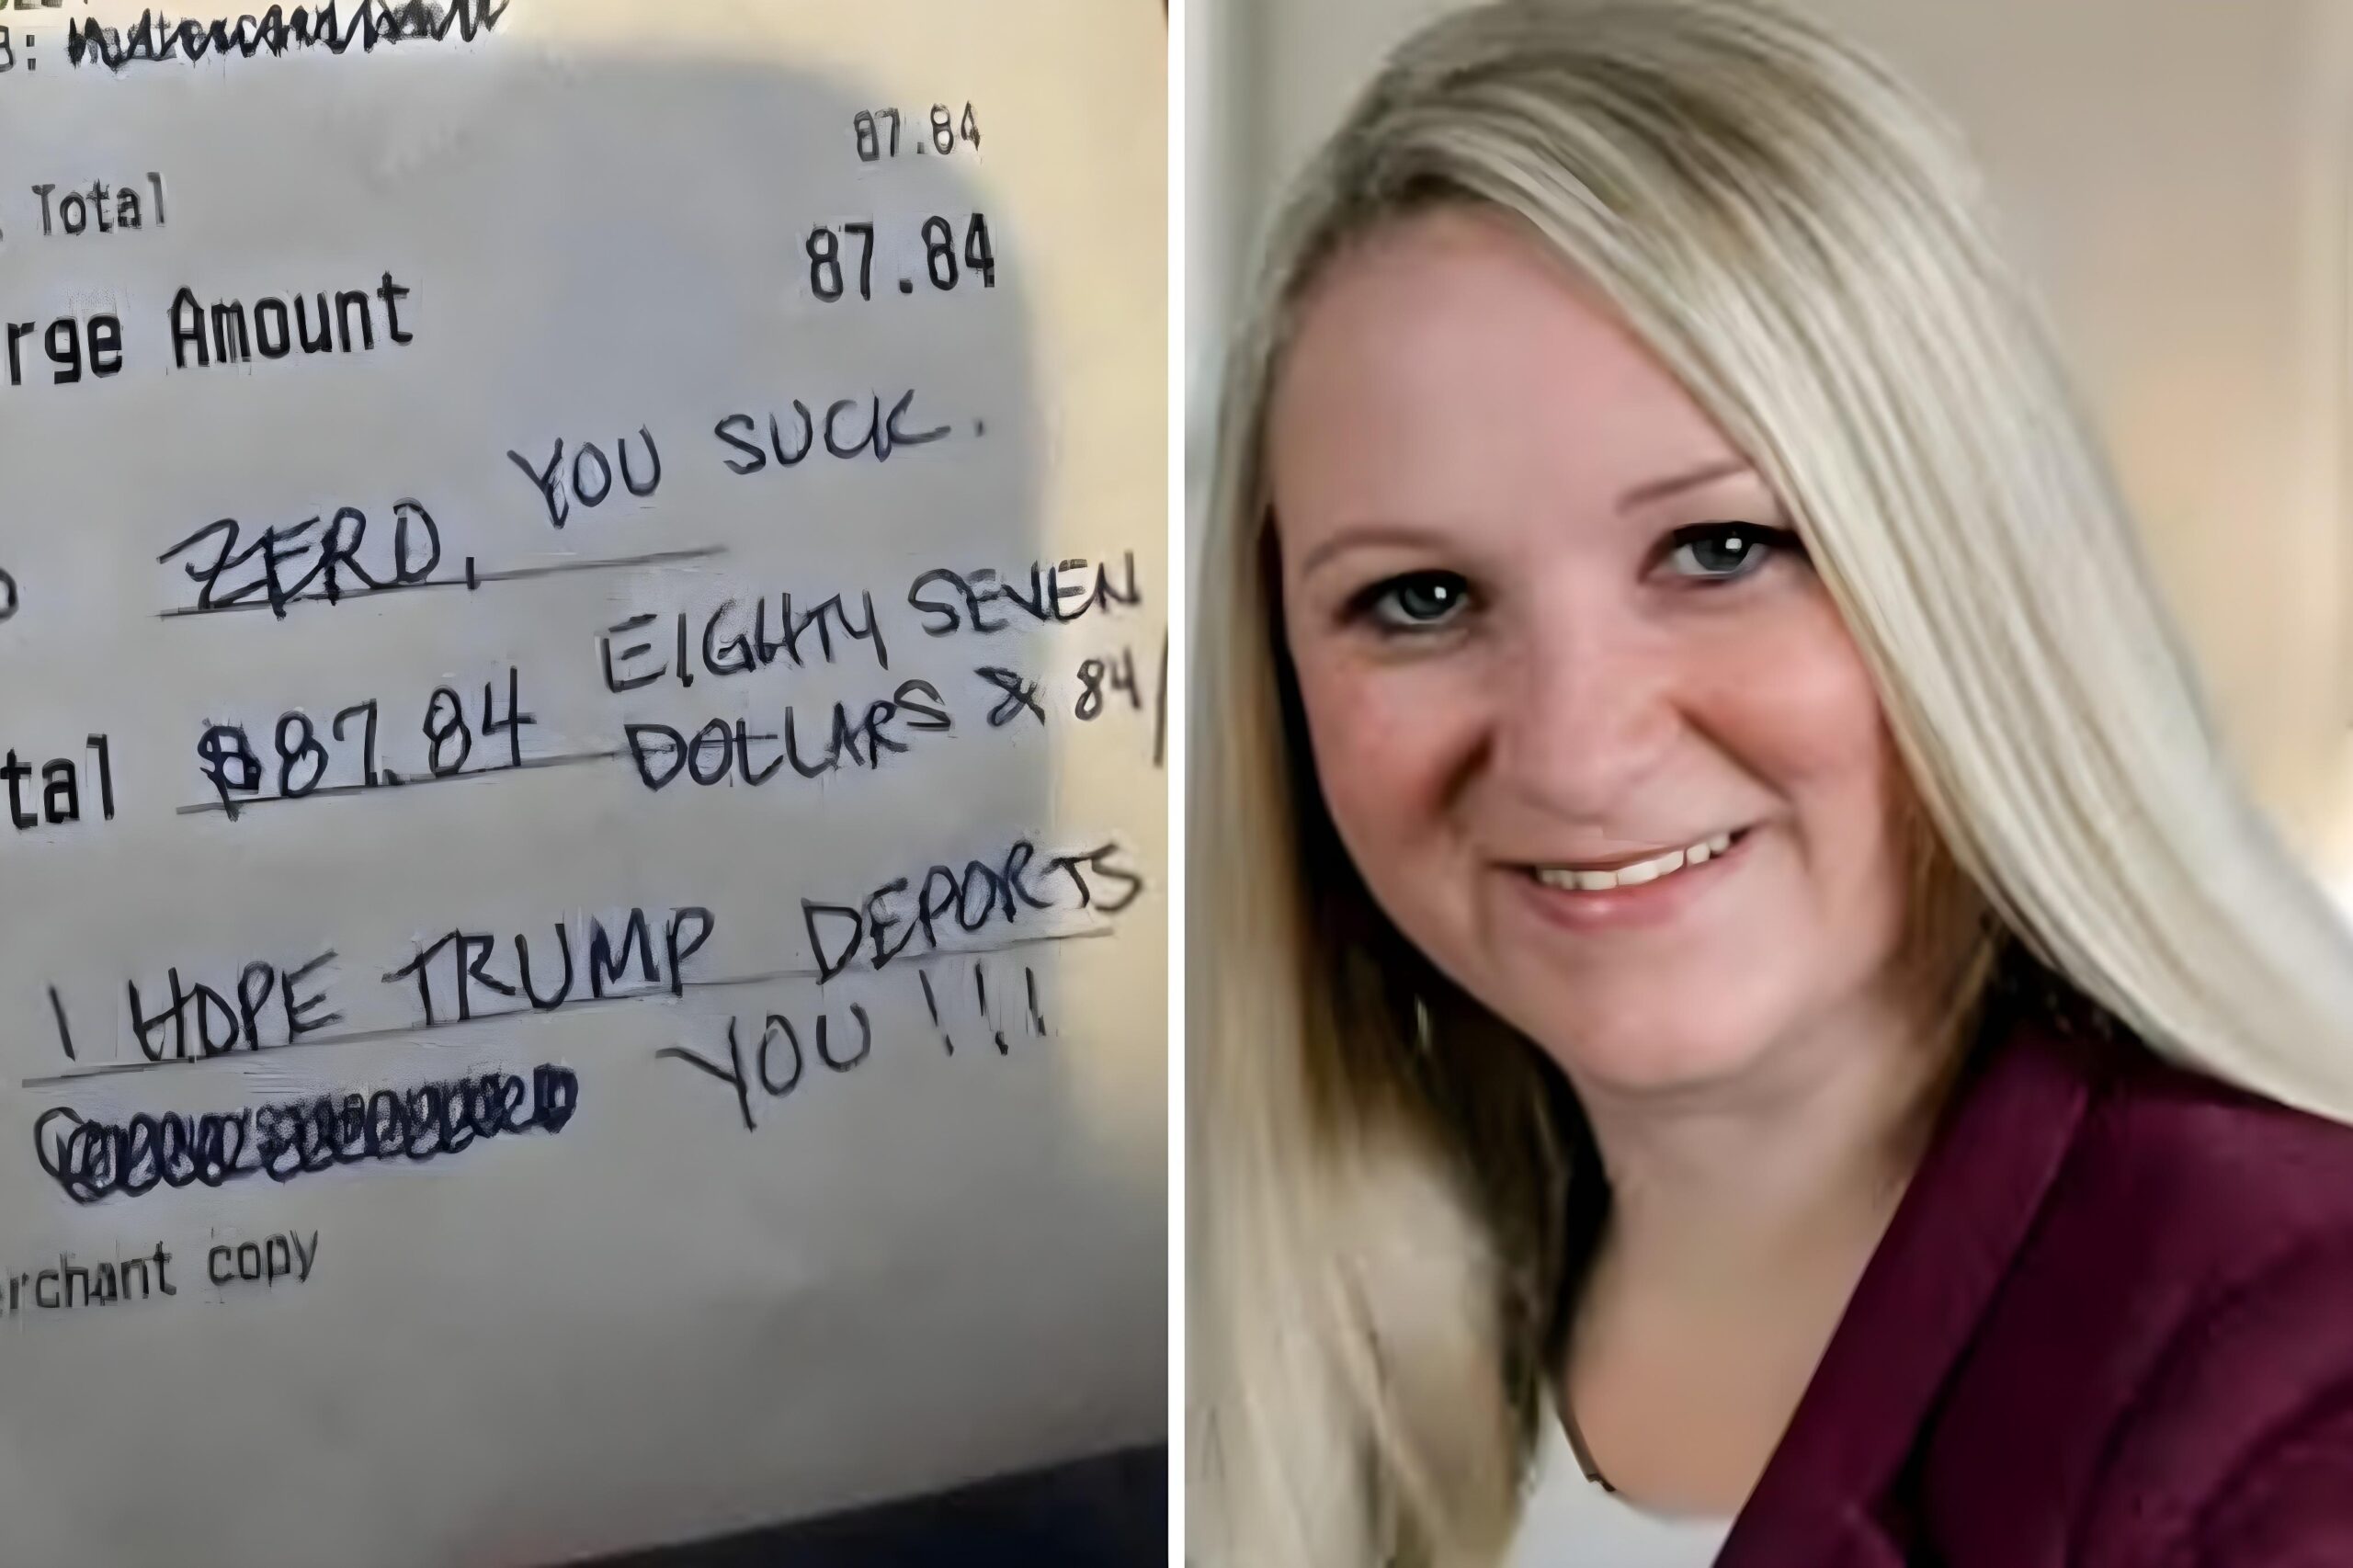 87.84
Total
87.84
rge Amount
ZERO, YOU SUCK.
tal $87.84 EIGHTY SEVEN
DOLLARS & 84/
I HOPE TRUMP DEPORTS
YOU!!!
rchant copy